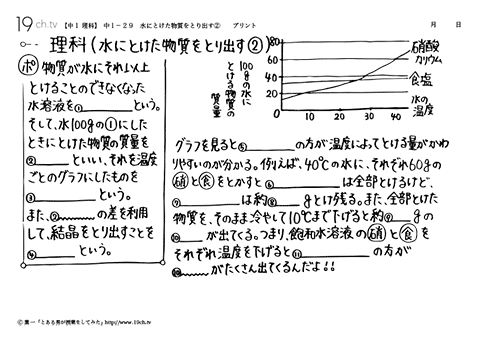 19ch.tv 【中1 理科】 中1-29 水にとけた物質をとり出す② プリント 月 日
理科(水にとけた物質をとり出す②)
ポ 物質が水にそれ以上
とけることのできなくなった
水溶液を① という。
そして、水100gの①にした
ときにとけた物質の質量を
② といい、それを温度
ごとのグラフにしたものを
③ という。
また、② の差を利用
して、結晶をとり出すことを
④ という。
100gの水に
とける物質の
質量
80
60
40
20
0
10 20 30 40
硝酸
カリウム
食塩
水の
温度
グラフを見ると⑤ の方が温度によってとける量がかわ
りやすいのが分かる。例えば、40℃の水に、それぞれ60gの
硝と食をとかすと⑥ は全部とけるけど、
⑦ は約⑧ gとけ残る。また、全部とけた
物質を、そのまま冷やして10℃まで下げると約⑨ gの
⑩ が出てくる。つまり、飽和水溶液の硝と食を
それぞれ温度を下げると⑪ の方が
⑩ がたくさん出てくるんだよ!!
©葉一「とある男が授業をしてみた」http://www.19ch.tv